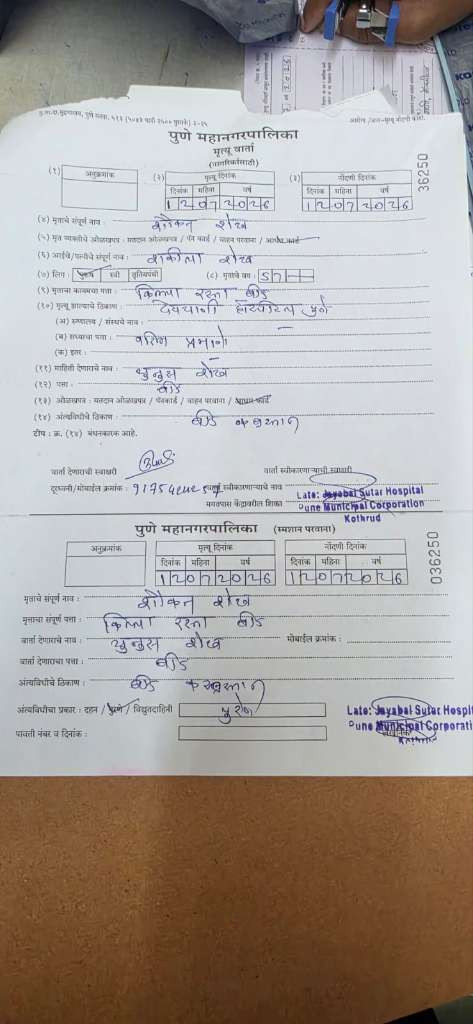 पुणे महानगरपालिका
मृत्यू वार्ता
(नागरिकांसाठी)
36250
(१) अनुक्रमांक (२) मृत्यू दिनांक (३) नोंदणी दिनांक
दिनांक महिना वर्ष दिनांक महिना वर्ष
12072026 12072026
(४) मृताचे संपूर्ण नाव : शौकत शेख
(५) मृत व्यक्तीचे ओळखपत्र : मतदान ओळखपत्र / पॅन कार्ड / वाहन परवाना / आधार कार्ड
(६) आईचे/पत्नीचे संपूर्ण नाव : शेख
(७) लिंग : पुरूष स्त्री तृतियपंथी (८) मृताचे वय : 57
(९) मृताचा कायमचा पत्ता : किल्ला रस्ता बीड
(१०) मृत्यू झाल्याचे ठिकाण : देवयानी हॉस्पिटल पुणे
(अ) रुग्णालय / संस्थेचे नाव :
(ब) सध्याचा पत्ता : वरील प्रमाणे
(क) इतर :
(११) माहिती देणाराचे नाव : युनुस शेख
(१२) पत्ता : बीड
(१३) ओळखपत्र : मतदान ओळखपत्र / पॅनकार्ड / वाहन परवाना / आधार कार्ड
(१४) अंत्यविधीचे ठिकाण : बीड कब्रस्तान
टीप : क्र. (१४) बंधनकारक आहे.
वार्ता देणाराची स्वाक्षरी वार्ता स्वीकारणाऱ्याची स्वाक्षरी
दूरध्वनी/मोबाईल क्रमांक : वार्ता स्वीकारणाऱ्याचे नाव
मयतपास केंद्रावरील शिक्का
Late: Jayabai Sutar Hospital
Pune Municipal Corporation
Kothrud
पुणे महानगरपालिका (स्मशान परवाना)
036250
अनुक्रमांक मृत्यू दिनांक नोंदणी दिनांक
दिनांक महिना वर्ष दिनांक महिना वर्ष
12072026 12072026
मृताचे संपूर्ण नाव : शौकत शेख
मृताचा संपूर्ण पत्ता : किल्ला रस्ता बीड
वार्ता देणाराचे नाव : युनुस शेख मोबाईल क्रमांक :
वार्ता देणाराचा पत्ता : बीड
अंत्यविधीचे ठिकाण : बीड कब्रस्तान
अंत्यविधीचा प्रकार : दहन / पुरणे / विद्युतदाहिनी
पावती नंबर व दिनांक :
Late: Jayabai Sutar Hospi
Pune Municipal Corporati